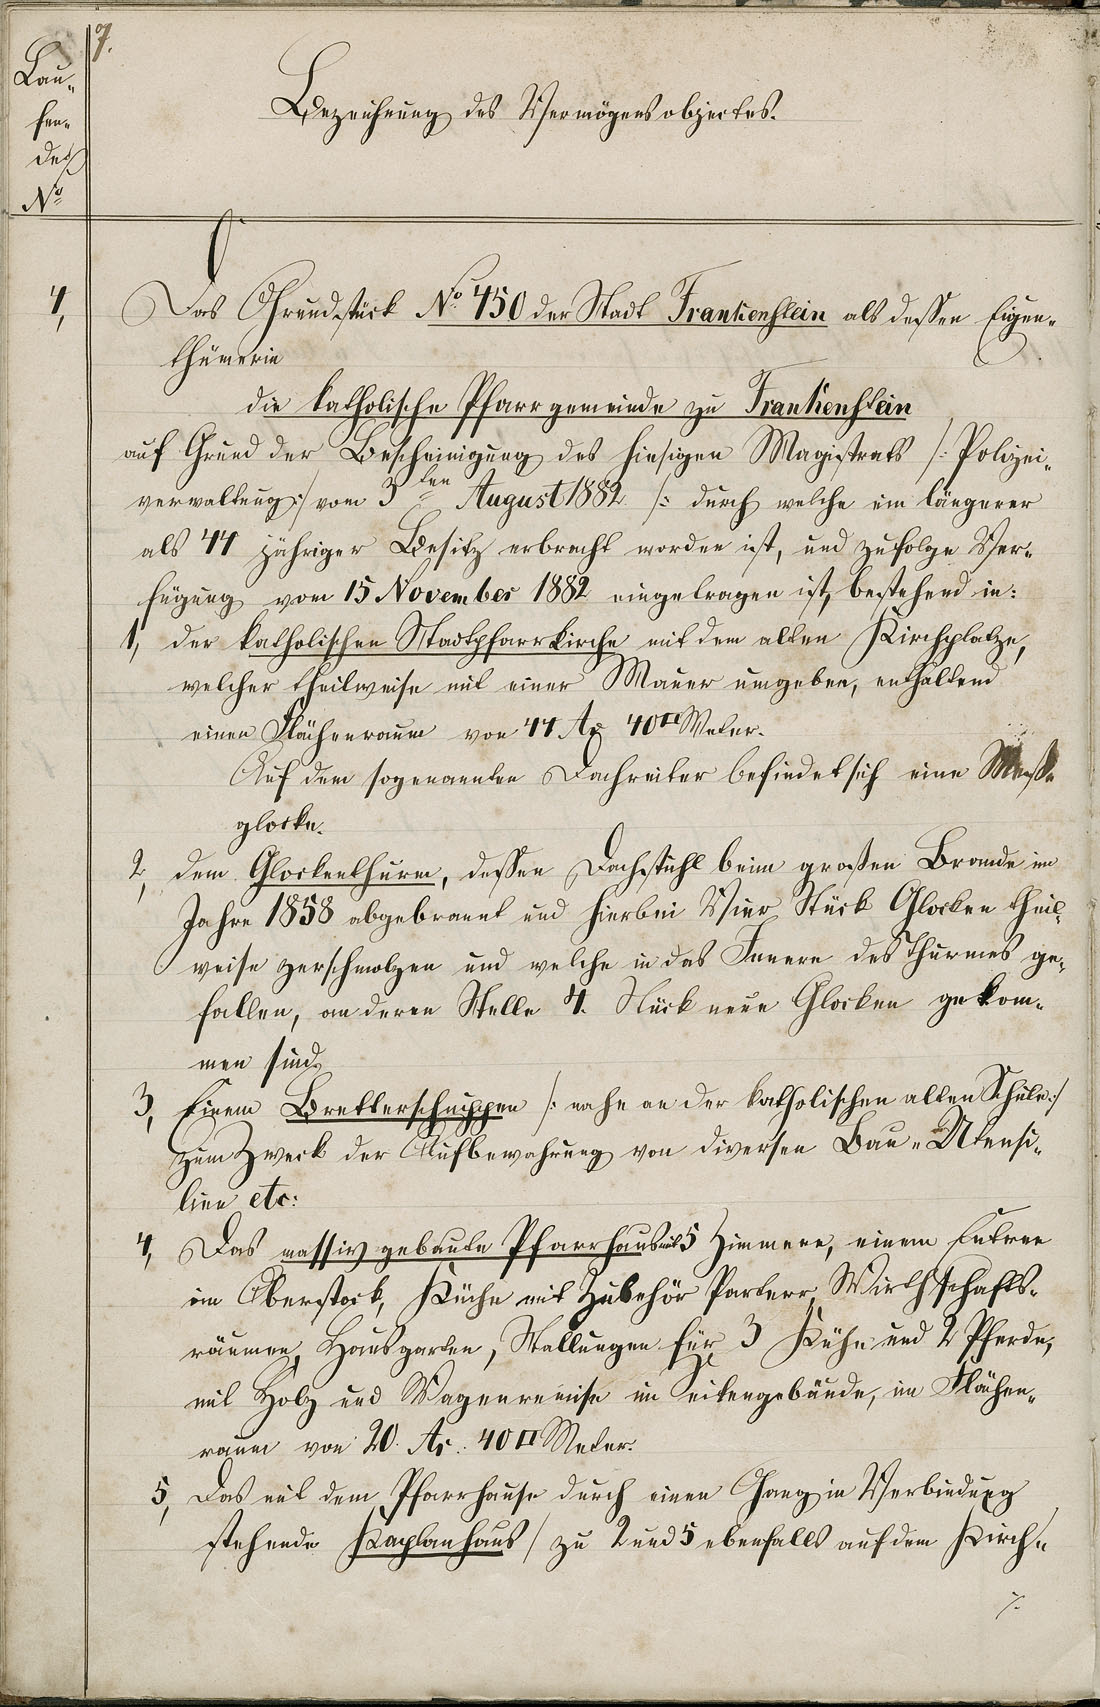 7.
Lau-
fen-
des
No
Bezeichnung des Vermögensobjectes.
1,
Das Grundstück No 450 der Stadt Frankenstein als dessen Eigen-
thümerin
die katholische Pfarrgemeinde zu Frankenstein
auf Grund der Bescheinigung des hiesigen Magistrats /: Polizei-
verwaltung :/ vom 3ten August 1882 /: durch welche ein längerer
als 44 jähriger Besitz erbracht worden ist, und zufolge Ver-
fügung vom 15 November 1882 eingetragen ist, bestehend in:
1, der katholischen Stadtpfarrkirche mit dem alten Kirchplatze,
welcher theilweise mit einer Mauer umgeben, enthaltend
einen Flächenraum von 44 Ar 40 □ Meter.
Auf dem sogenannten Dachreiter befindet sich eine Meß-
glocke.
2, dem Glockenthurm, dessen Dachstuhl beim großen Brande im
Jahre 1858 abgebrannt und hierbei Vier Stück Glocken theil-
weise zerschmolzen und welche in das Innere des Thurmes ge-
fallen, an deren Stelle 4. Stück neue Glocken gekom-
men sind.
3, Einem Bretterschuppen /: nahe an der katholischen alten Schule :/
zum Zweck der Aufbewahrung von diversen Bau-Utensi-
lien etc:
4, Das massiv gebaute Pfarrhaus mit 5 Zimmern, einem Entree
im Oberstock, Küche mit Zubehör Parterr, Wirthschafts-
räumen, Hausgarten, Stallungen für 3 Kühe und 2 Pferde,
mit Holz und Wagenremise im Seitengebäude, im Flächen-
raum von 20. Ar. 40 □ Meter.
5, Das mit dem Pfarrhause durch einen Gang in Verbindung
stehende Kaplanhaus / zu 2 und 5 ebenfalls auf dem Kirch-
./.